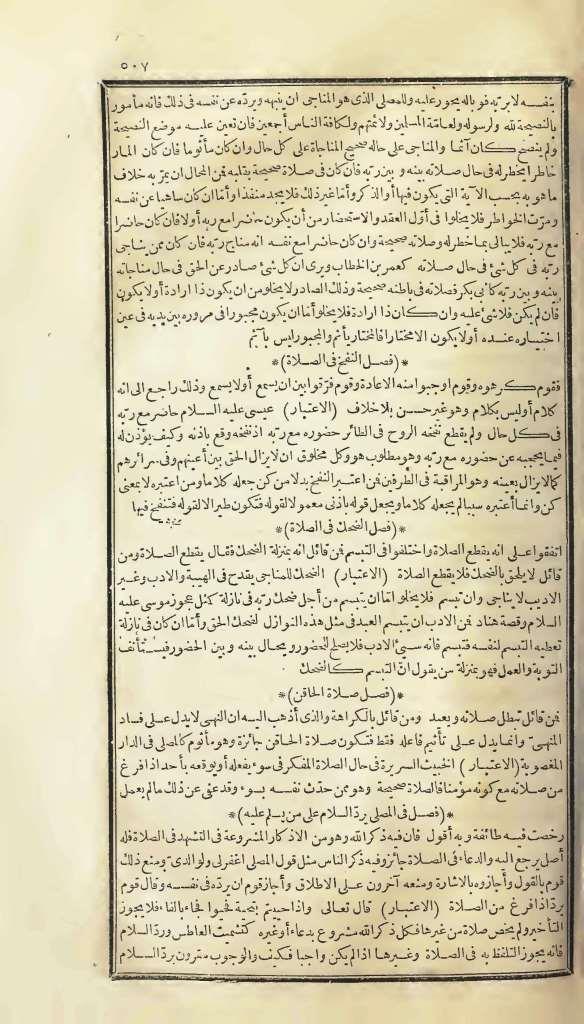 ٥٠٧
بنفسه لا بربه فوباله يحور عليه وللمصلي الذي هو المناجى ان ينبهه ويرده عن نفسه في ذلك فانه مأمور
بالنصيحة لله ولرسوله ولعامة المسلمين ولائمتهم ولكافة الناس أجمعين فان تعين عليه موضع النصيحة
ولم ينصح كان آثما والمناجى على حاله صحيح المناجاة على كل حال وان كان مأثوما فان كان المار
خاطرا يخطر له في حال صلاته بينه وبين ربه فان كان في صلاة صحيحة بقلبه فمن المحال ان يمر به خلاف
ما هو به بحسب الآية التي يكون فيها أو الذكر وأما غير ذلك فلا يجد منفذا وأما ان كان ساهيا عن نفسه
ومرت الخواطر فلا يخلوا في أول العقد والاستحضار من أن يكون حاضرا مع ربه أو لا فان كان حاضرا
مع ربه فلا يبالي بما خطر له وصلاته صحيحة وان كان حاضرا مع نفسه انه مناج ربه فان كان ممن يناجى
ربه في كل شئ في حال صلاته كعمر بن الخطاب ويرى ان كل شئ صادر عن الحق في حال مناجاته
بينه وبين ربه كأبي بكر فصلاته في باطنه صحيحة وذلك الصادر لا يخلو من ان يكون ذا ارادة أو لا يكون
فان لم يكن فلا شئ عليه وان كان ذا ارادة فلا يخلو أما ان يكون مجبورا في مروره بين يديه في عين
اختياره عنده أولا يكون الا مختارا فالمختار يأثم والمجبور ليس بآثم
*(فصل النفخ في الصلاة)*
فقوم كرهوه وقوم أوجبوا منه الاعادة وقوم فرقوا بين ان يسمع أو لا يسمع وذلك راجع الى انه
كلام أو ليس بكلام وهو غير حسن بلا خلاف (الاعتبار) عيسى عليه السلام حاضر مع ربه
في كل حال ولم يقطع نفخه الروح في الطائر حضوره مع ربه اذ نفخه وقع باذنه وكيف يؤذن له
فيما يحجبه عن حضوره مع ربه وهو مطلوب هو وكل مخلوق ان لا يزال الحق بين أعينهم وفي سرائرهم
كما لا يزال بعينه وهو المراقبة في الطرفين فمن اعتبر النفخ بدلا من كن جعله كلاما ومن اعتبره لا بمعنى
كن وانما أعتبره سببا لم يجعله كلاما ويجعل قوله باذنى معمولا لقوله فتكون طيرا لا لقوله فتنفخ فيها
*(فصل الضحك في الصلاة)*
اتفقوا على انه يقطع الصلاة واختلفوا في التبسم فمن قائل انه بمنزلة الضحك فقال يقطع الصلاة ومن
قائل لا يلحق بالضحك فلا يقطع الصلاة (الاعتبار) الضحك للمناجي يقدح في الهيبة والادب وغير
الاديب لا يناجى وان تبسم فلا يخلوا اما ان يتبسم من أجل ضحك ربه في نازلة كمثل عجوز موسى عليه
السلام وقصة هناد فمن الادب ان يتبسم العبد في مثل هذه النوازل لضحك الحق وأما ان كان في نازلة
تعطيه التبسم لنفسه فتبسم فانه سيئ الادب فلا يصلح للحضور ويحال بينه وبين الحضور فيستأنف
التوبة والعمل فهو بمنزلة من يقول ان التبسم كالضحك
*(فصل صلاة الحاقن)*
فمن قائل تبطل صلاته ويعيد ومن قائل بالكراهة والذي أذهب اليه ان النهى لا يدل على فساد
المنهى وانما يدل على تأثيم فاعله فقط فتكون صلاة الحاقن جائزة وهو مأثوم كالمصلى في الدار
المغصوبة (الاعتبار) الخبيث السريرة في حال الصلاة المفكر في سوء يفعله أو يوقعه بأحد اذا فرغ
من صلاته مع كونه مؤمنا فالصلاة صحيحة وهو ممن حدث نفسه بسوء وقد عفى عن ذلك ما لم يعمل
*(فصل في المصلى يرد السلام على من يسلم عليه)*
رخصت فيه طائفة وبه أقول فان فيه ذكر الله وهو من الاذكار المشروعة في التشهد في الصلاة فله
أصل يرجع اليه والدعاء في الصلاة جائز وفيه ذكر الناس مثل قول المصلى اغفر لى ولوالدى ومنع ذلك
قوم بالقول وأجازوه بالاشارة ومنعه آخرون على الاطلاق وأجاز قوم ان يرده في نفسه وقال قوم
يرد اذا فرغ من الصلاة (الاعتبار) قال تعالى واذا حييتم بتحية فحيوا فجاء بالفاء فلا يجوز
التأخير ولم يخص صلاة من غيرها فكل ذكر الله مشروع بدعاء أو غيره كتشميت العاطس ورد السلام
فانه يجوز التلفظ به في الصلاة وغيرها اذا لم يكن واجبا فكيف والوجوب مقرون برد السلام